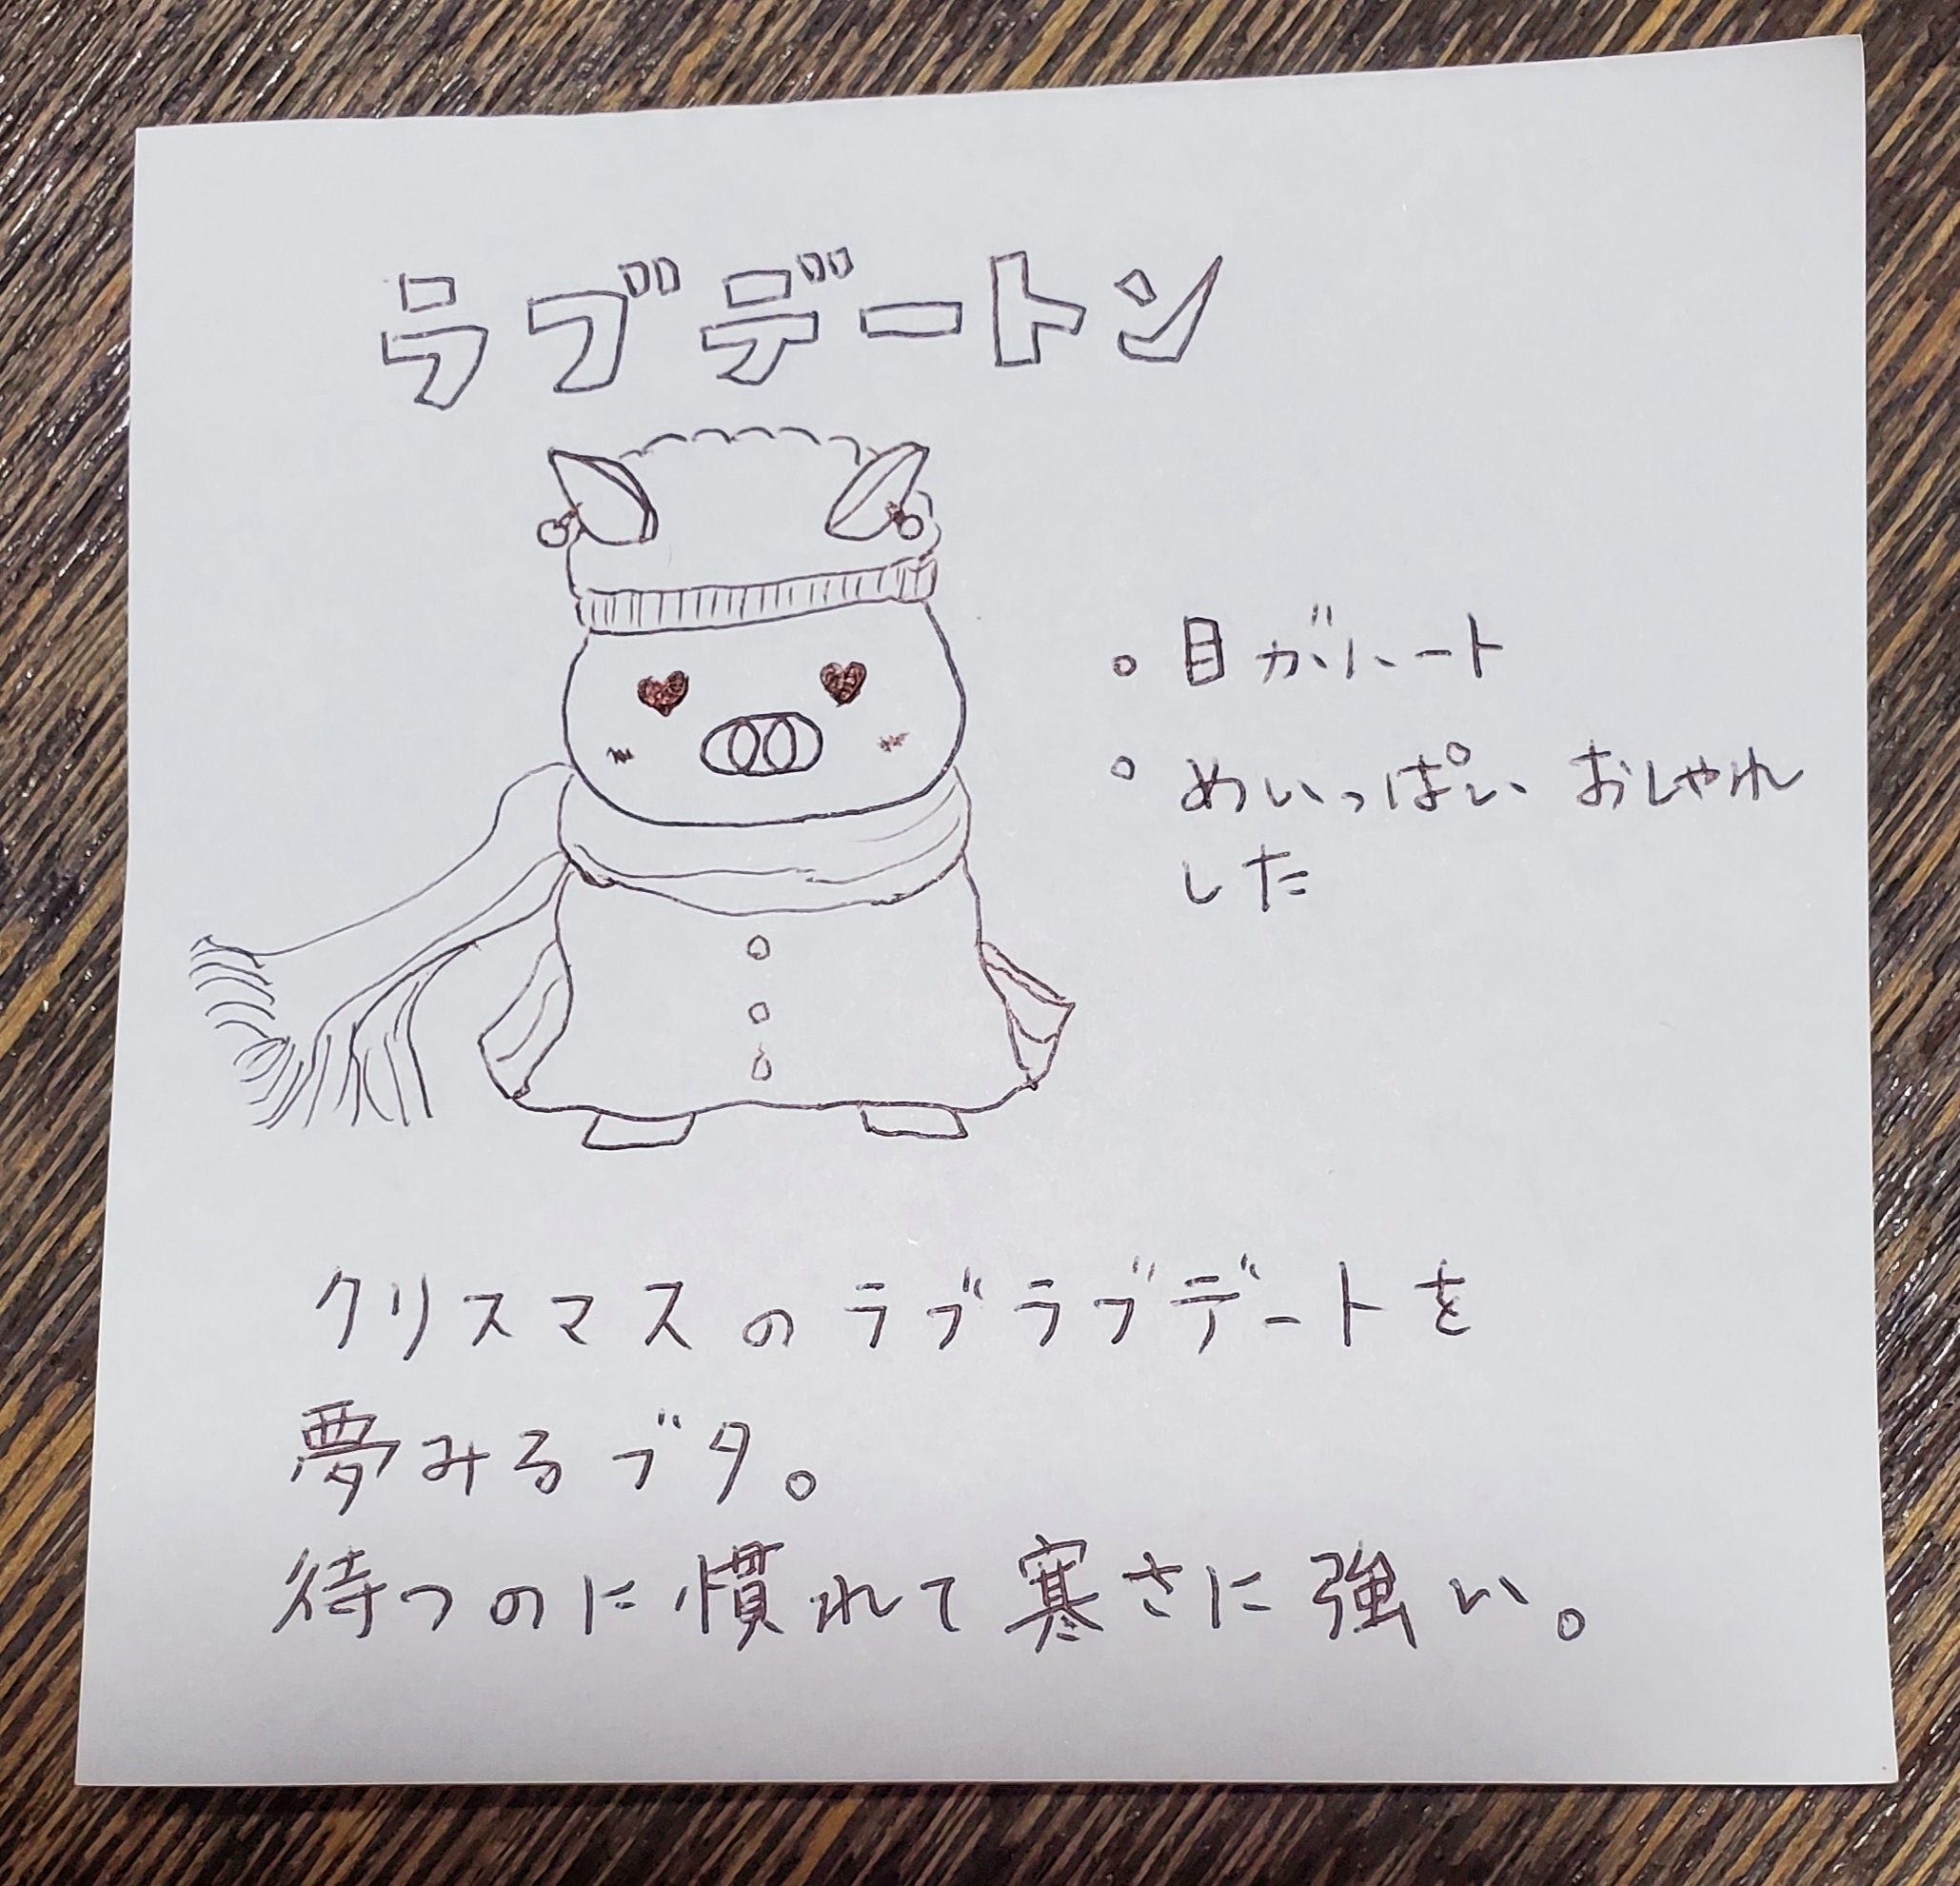 ラブデートン
。目がハート
。めいっぱい おしゃれ
した
クリスマスのラブラブデートを
夢みるブタ。
待つのに慣れて寒さに強い。